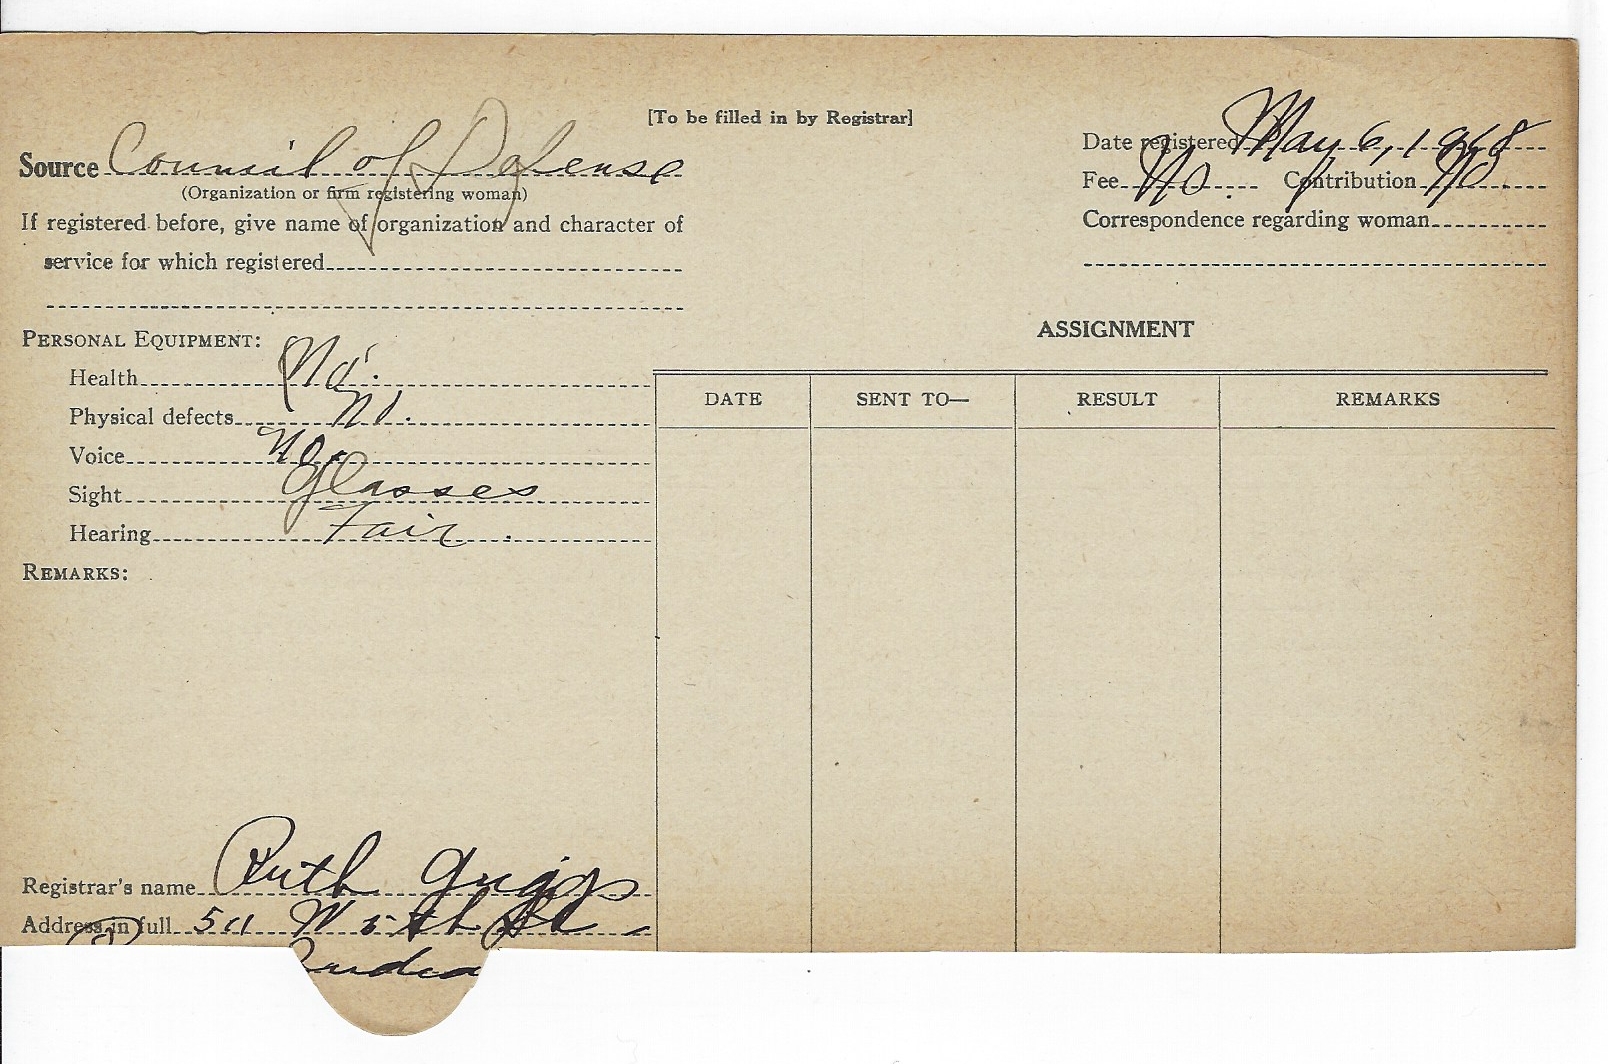 [To be filled in by Registrar]
Source Council of Defense
(Organization or firm registering woman)
If registered before, give name of organization and character of
service for which registered
Date registered May 6, 1918
Fee No. Contribution No.
Correspondence regarding woman
PERSONAL EQUIPMENT:
Health No.
Physical defects No.
Voice No.
Sight Glasses
Hearing Fair.
REMARKS:
ASSIGNMENT
DATE SENT TO— RESULT REMARKS
Registrar's name Ruth Griggs
Address in full 511 W 5th St